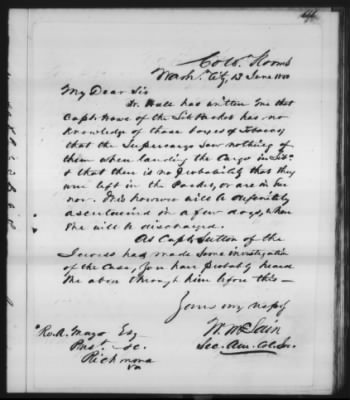 Colo. Rooms
Wash. City, 13 June 1850
My Dear Sir
Dr. Hall has written me that
Capt. Howe of the Lib Packet has no
knowledge of those boxes of tobacco,
that the Supercargo saw nothing of
them when landing the Cargo in
& that there is no probability that they
were left in the Packet, or are in her
now. This however will be definitely
ascertained in a few days, when
she will be discharged.
As Capt. Sutton of the
had made some investigation
of the Case, you have probably heard
the above through him before this —
Yours very resp'y
W. McLain
Sec. Am. Col. So.
Ro. A. Mayo Esq
Richmond
Va